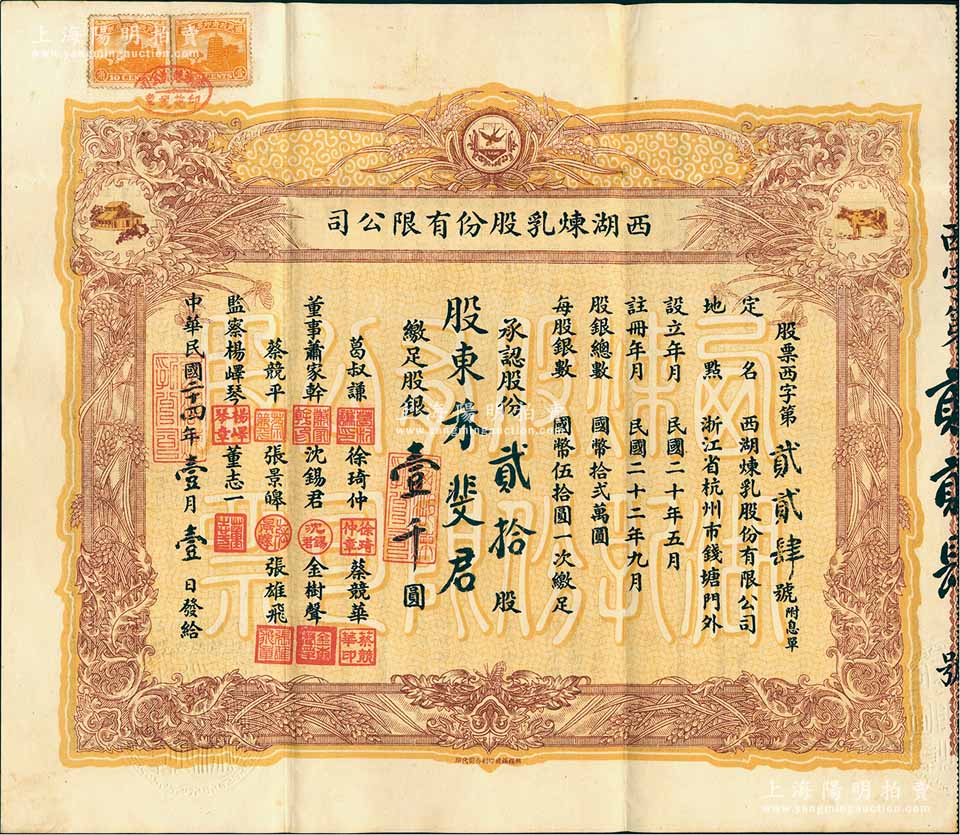 上海陽明拍賣
www.yangmingauction.com
10 CENTS
西湖煉乳股份有限公司
股票西字第貳貳肆號附息單
定名 西湖煉乳股份有限公司
地點 浙江省杭州市錢塘門外
設立年月 民國二十年五月
註冊年月 民國二十二年九月
股銀總數 國幣拾弍萬圓
每股銀數 國幣伍拾圓一次繳足
承認股份貳拾股
股東李斐君
繳足股銀壹千圓
葛叔謙 徐琦仲 蔡競華
董事蕭家幹 沈錫君 金樹聲
蔡競平 張景暤 張雄飛
監察楊嶧琴 董志一
中華民國二十四年壹月壹日發給
西字第貳貳肆號
上海陽明拍賣
www.yangmingauction.com
上海陽明拍賣
www.yangmingauction.com